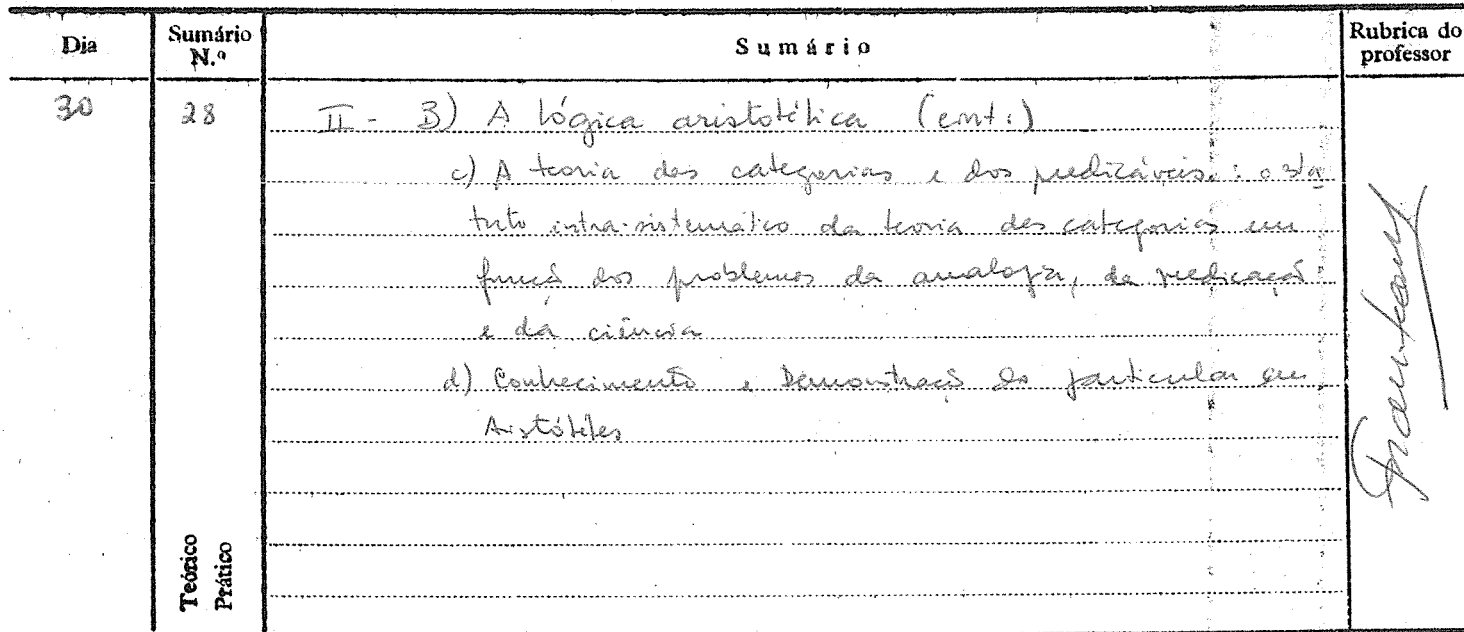 Dia Sumário N.º Sumário Rubrica do professor
30 28 II - B) A lógica aristotélica (cont.)
c) A teoria das categorias e dos predicáveis: o sta
tuto intra-sistemático da teoria das categorias em
função dos problemas da analogia, da predicação
e da ciência
d) Conhecimento e Demonstração do particular em
Aristóteles
Teórico
Prático